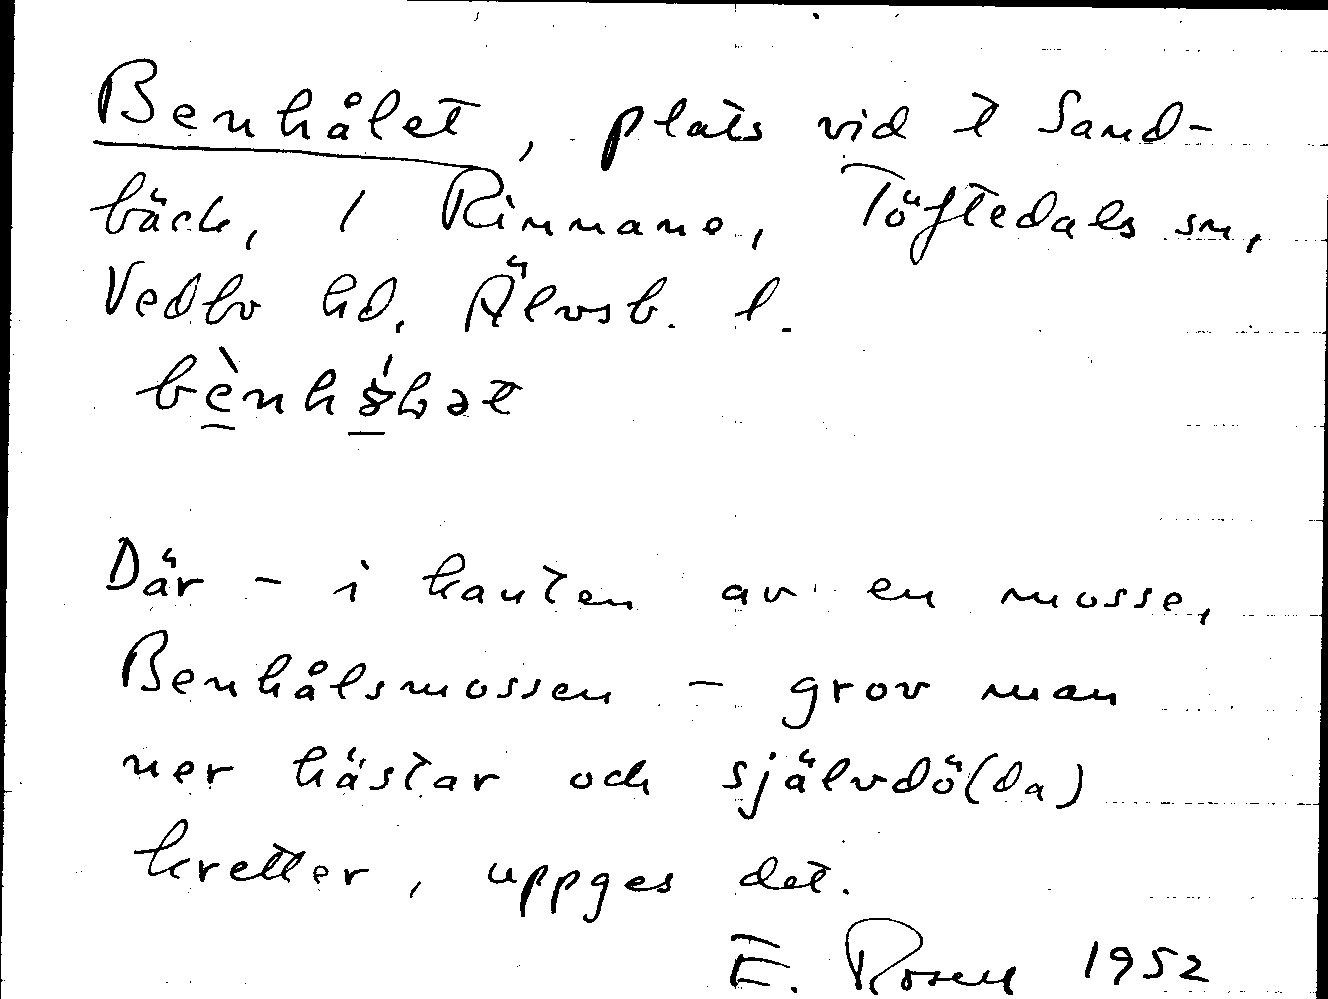 Benhålet, plats vid t Sand-
bäck, 1 Rinnane, Töftedals sn,
Vedbo hd, Älvsb. l.
Där - i kanten av en mosse,
Benhålsmossen - grov man
ner hästar och självdö(da)
kretter, uppges det.
E. Rosell 1952